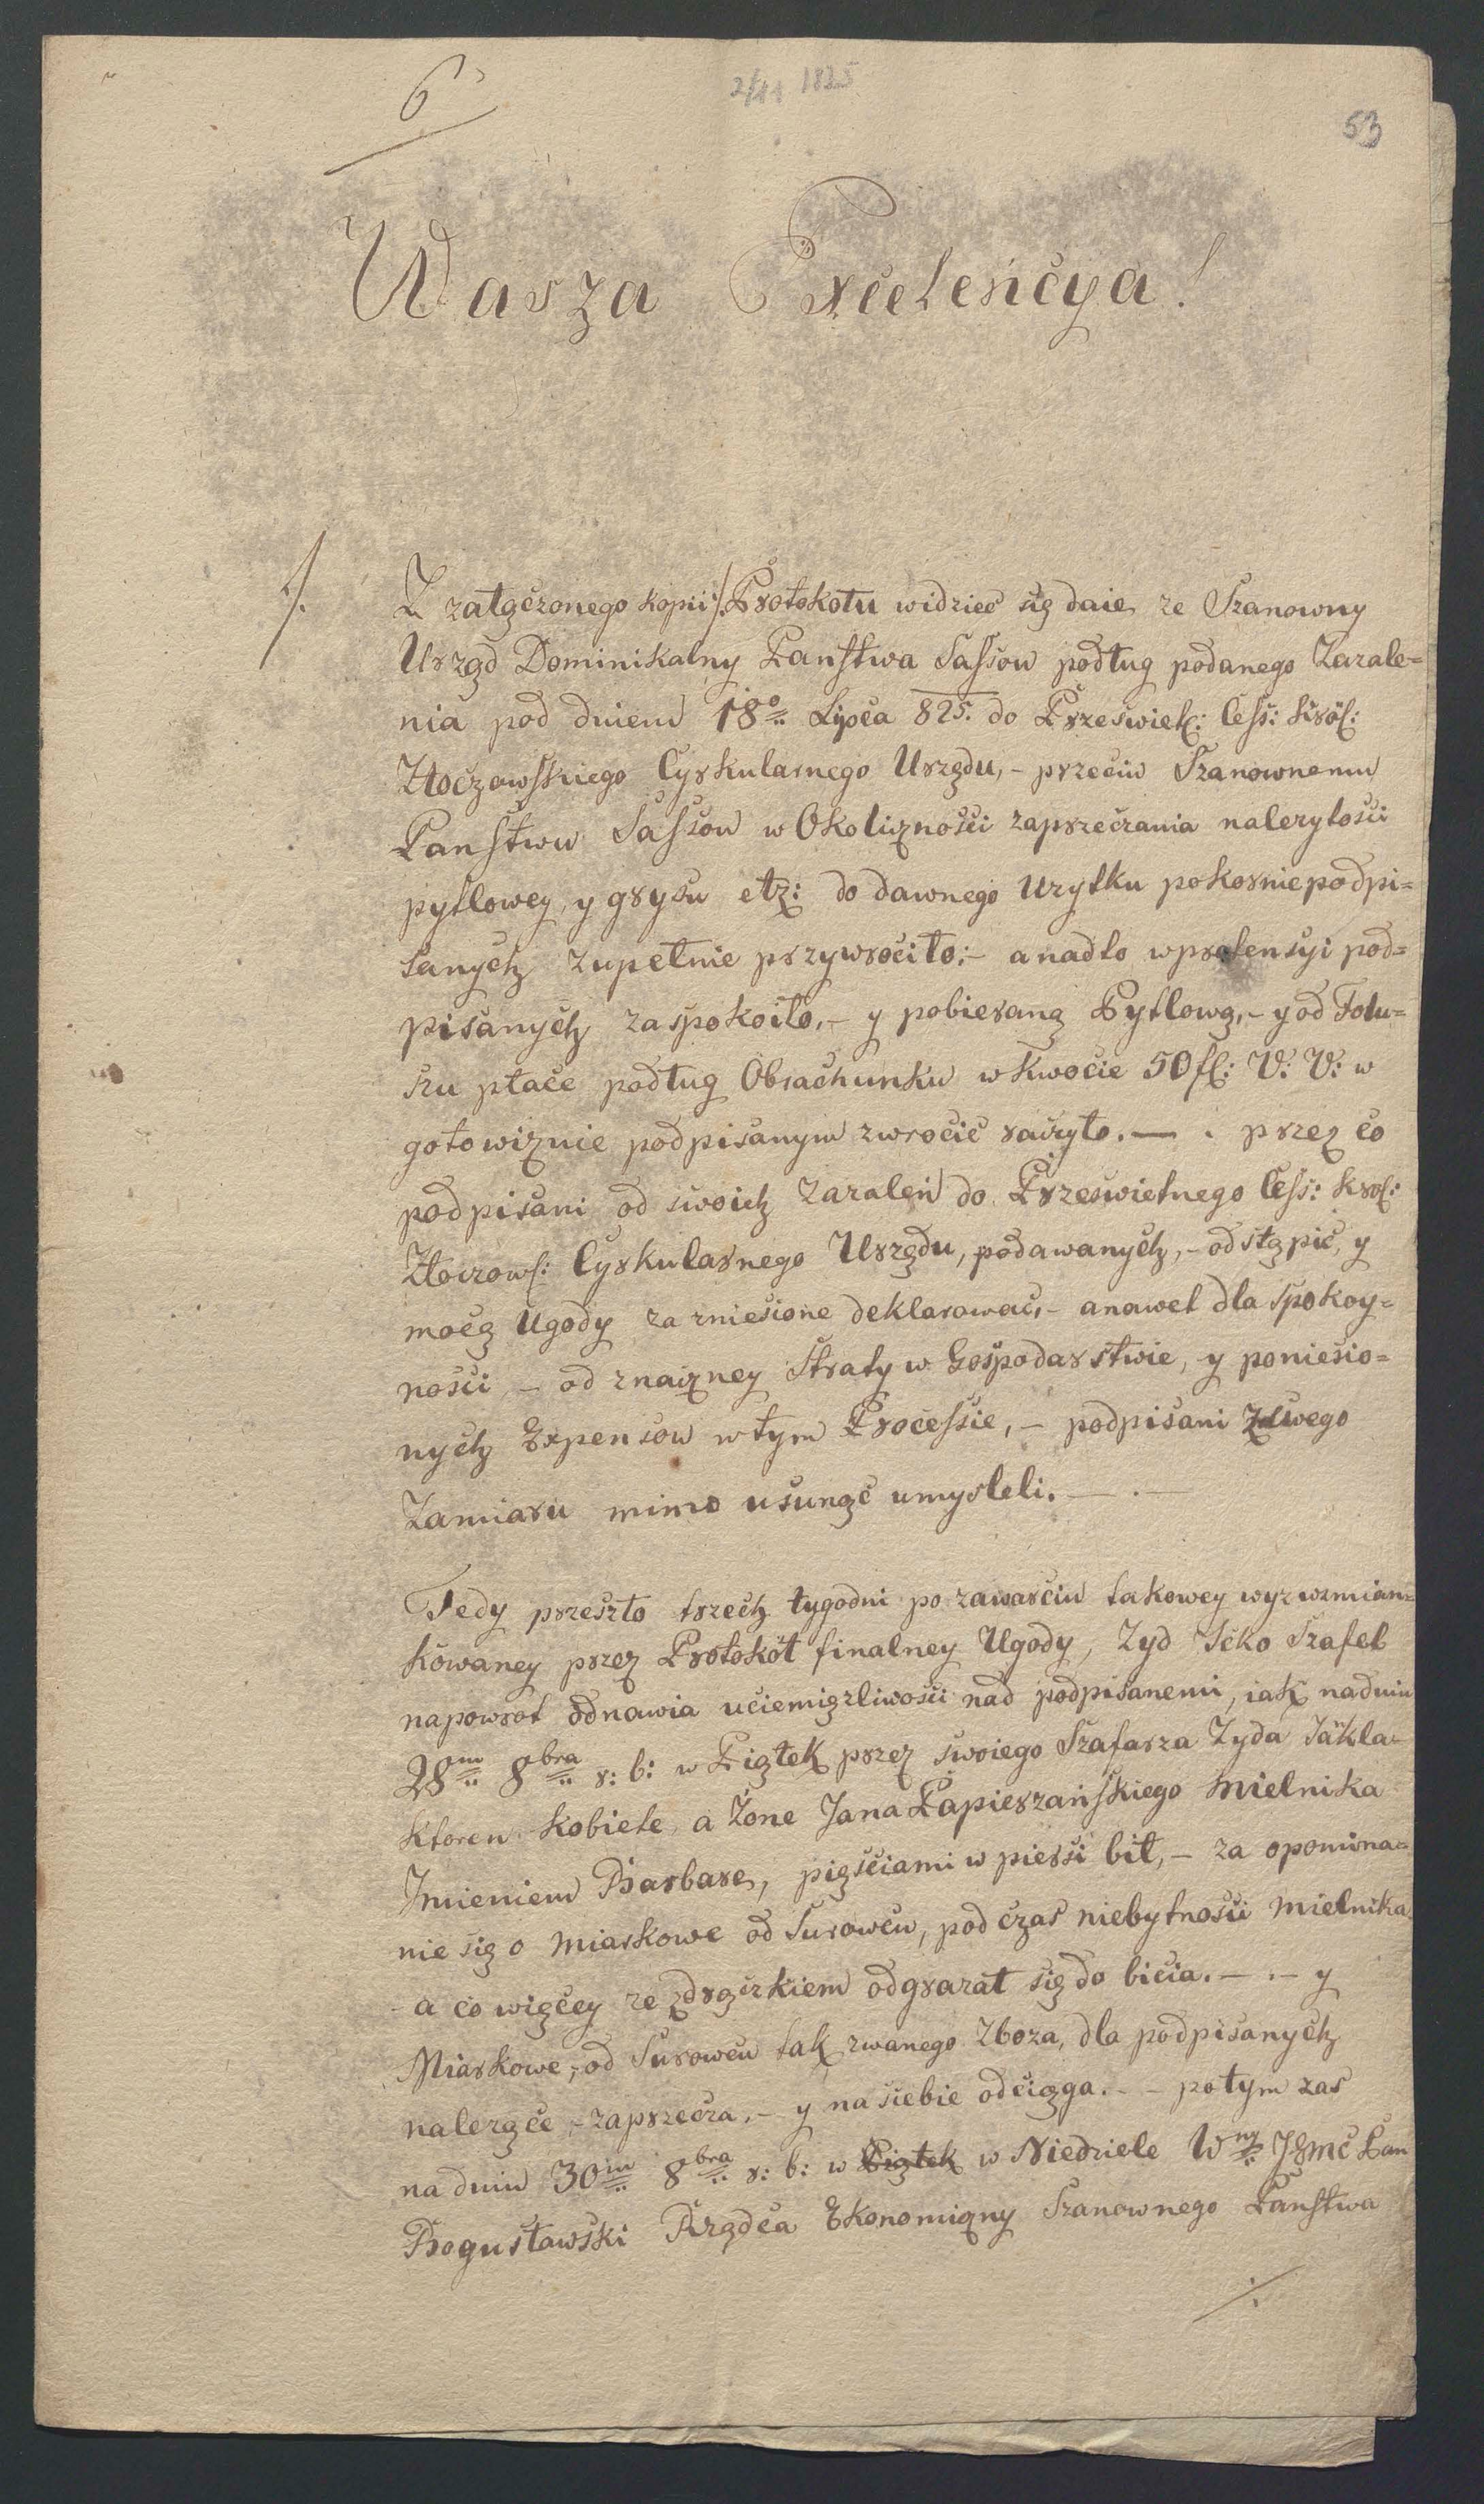 6
2/11 1825
53
Wasza Excelencya!
1/. Z załączonego kopii /. Protokołu widzieć się daie, ze Szanowny
Urząd Dominikalny Panstwa Sassow podług podanego Zazale=
nia pod dniem 18o Lipca 825. do Przeswietl: Cess: Król:
Złoczowskiego Cyrkularnego Urzędu, - przeciw Szanownemu
Panstwu Sassow w Okoliczności zaprzeczania nalezytosci
pytlowey, y grysu etz: do dawnego Uzytku pokornie podpi=
sanych zupełnie przywrociło; - a nadto w pretensyi pod=
pisanych zaspokoiło, - y pobieraną Pytlową, - y od Folu=
szu płace podług Obrachunku w kwocie 50 fl: V: V: w
gotowiznie podpisanym zwrocić raczyło. — . przez co
podpisani od swoich Zazaleń do Przeswietnego Cess: Krol:
Złoczows: Cyrkularnego Urzędu, podawanych, - odstąpić, y
mocą Ugody za zniesione deklarować, - a nawet dla Spokoy=
nosci, - od znaczney Straty w Gospodarstwie, y poniesio=
nych Expensow w tym Processie, - podpisani z swego
Zamiaru mimo usunąć umysleli. — . —
Tedy przeszło trzech tygodni po zawarciu takowey wyz wzmian=
kowaney przez Protokół finalney Ugody, Zyd Icko Szafel
napowrot odnawia uciemięzliwosci nad podpisanemi, iak na dniu
28m 8bra r: b: w Piątek przez swoiego Szafarza Zyda Jäkla
ktoren kobiete, a Żone Jana Papierzańskiego Mielnika
Imieniem Barbare, pięsciami w piersi bił, - za opomina=
nie się o Miarkowe od Surowcu, pod czas niebytnosci Mielnika
- a co więcey ze z drączkiem odgrazał się do bicia. — . — y
Miarkowe, od Surowcu tak zwanego Zboza, dla podpisanych
nalezące, - zaprzecza, - y na siebie odciąga. - - potym zas
na dniu 30m 8bra r: b: w Piątek w Niedziele Wny JGmć Pan
Bogusławski Rządca Ekonomiczny Szanownego Panstwa
./.